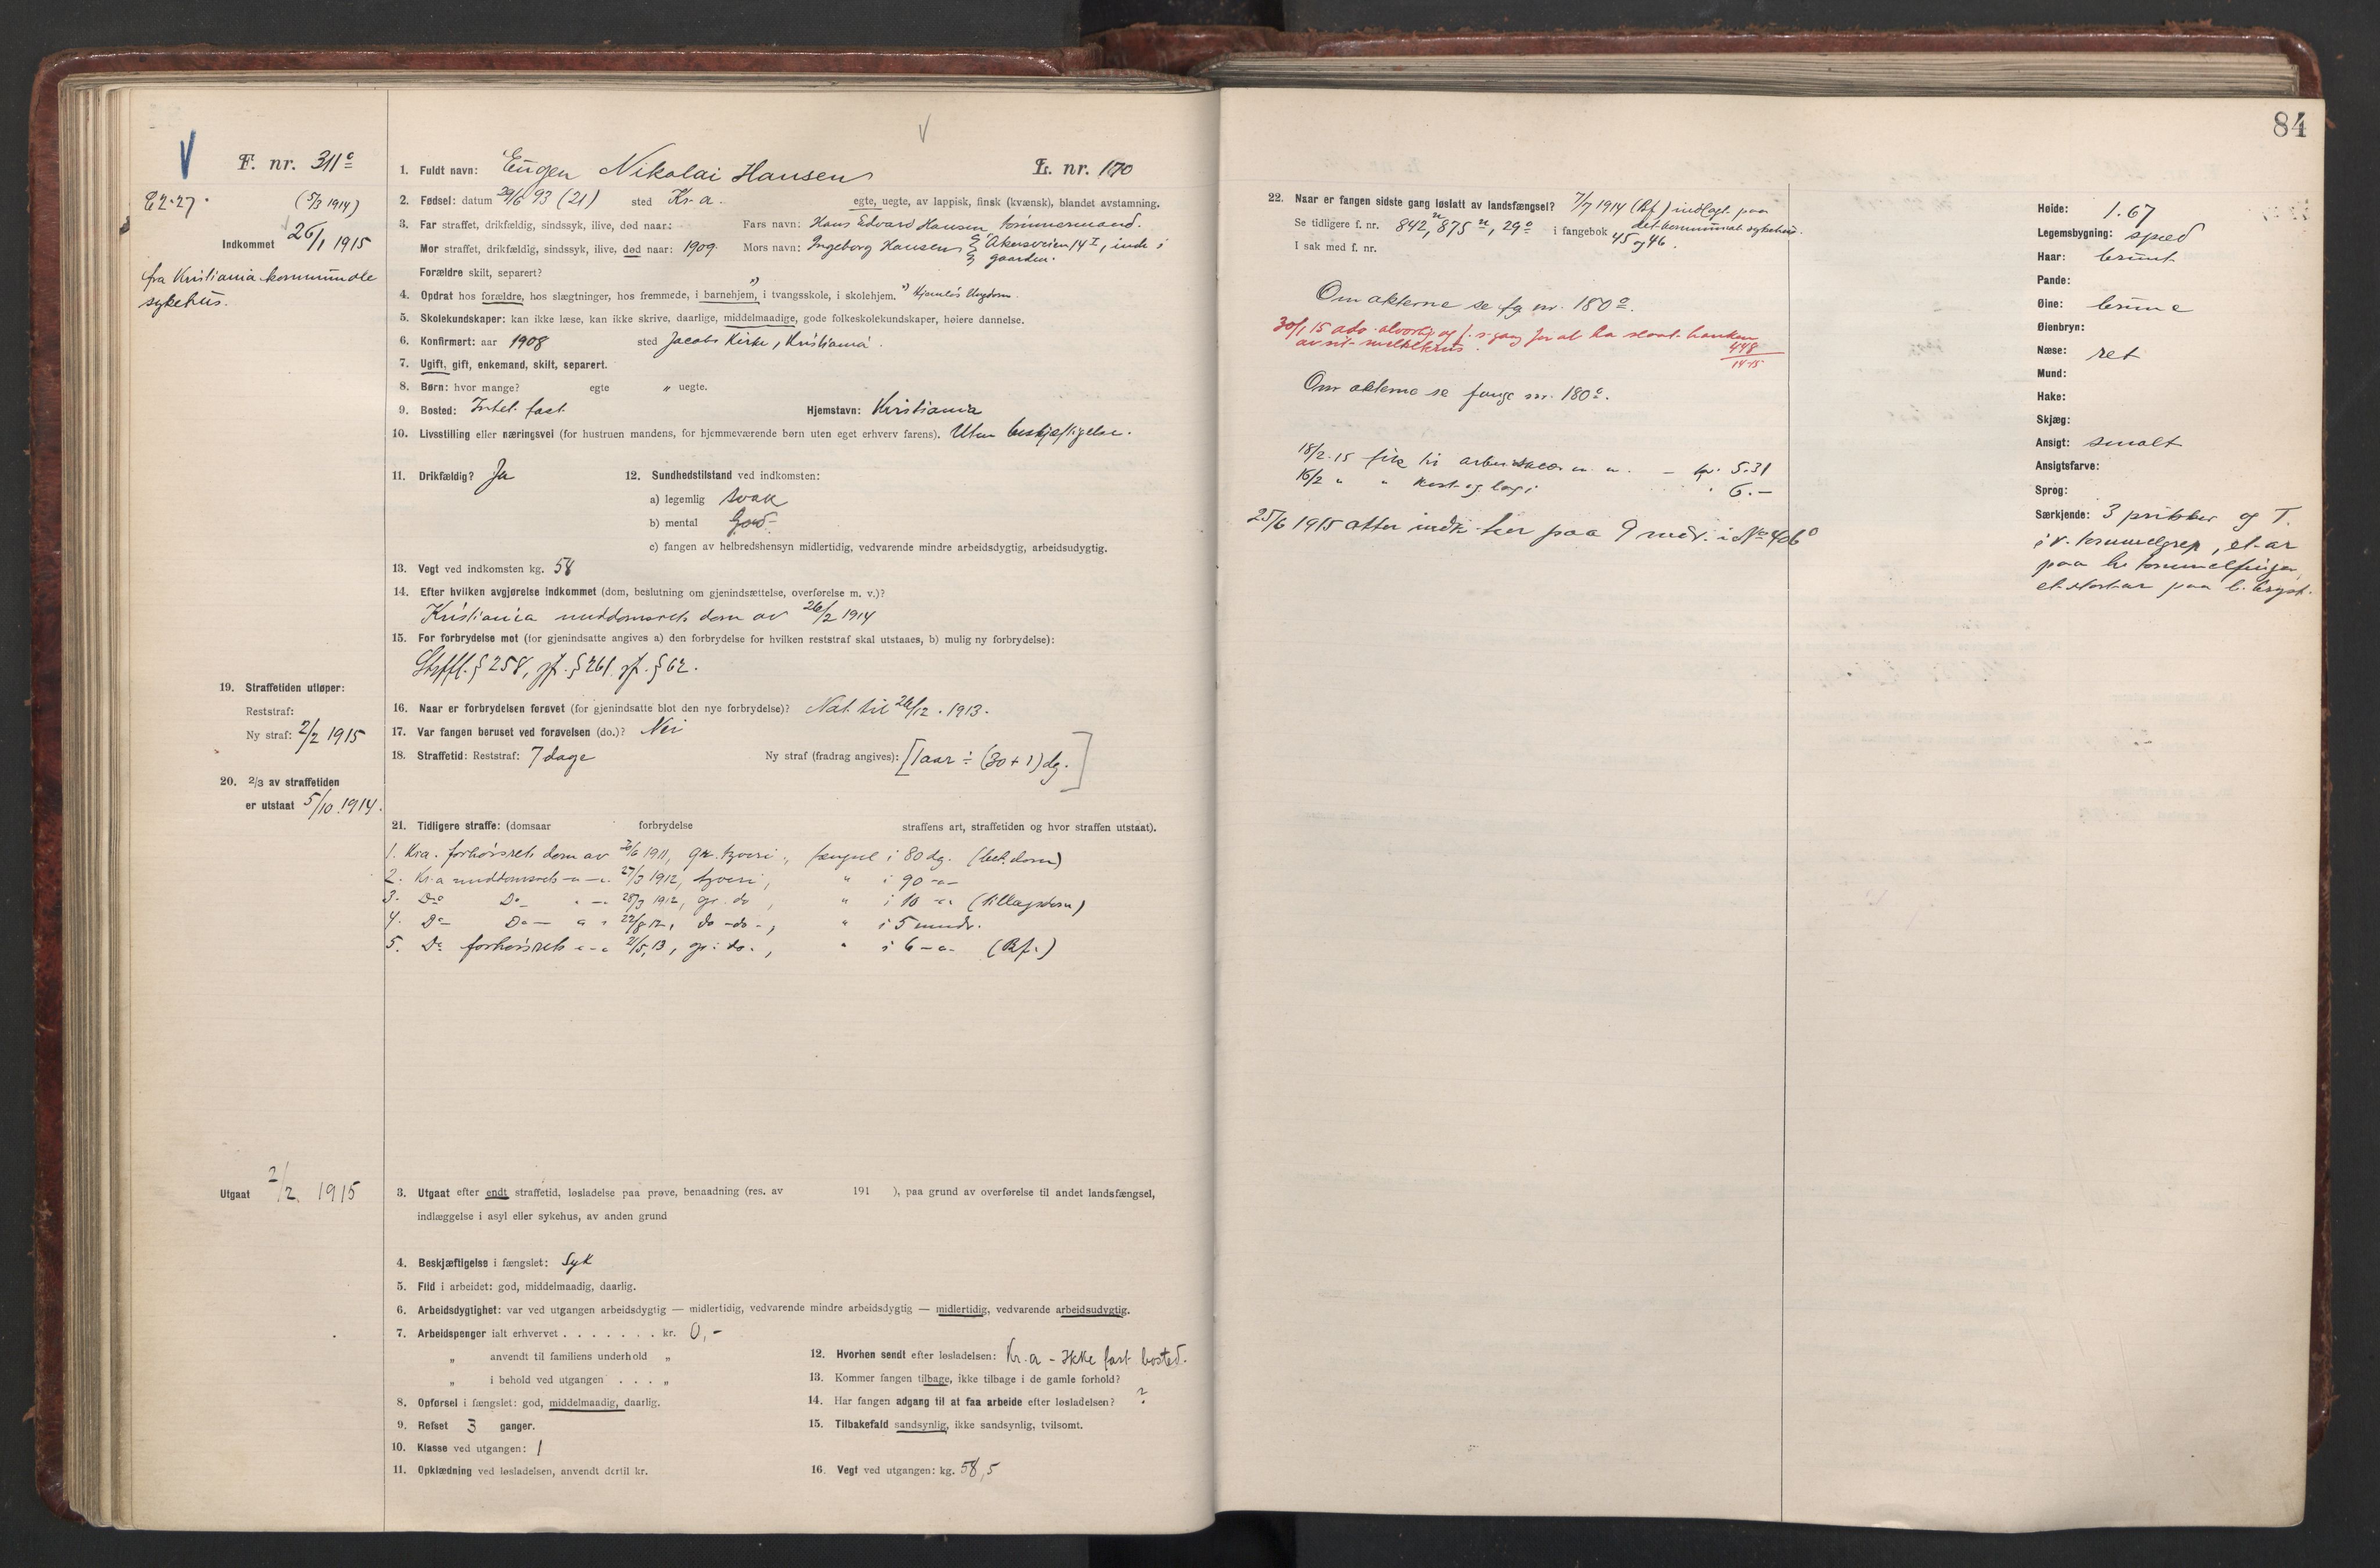 F. nr. 311c
E2.27.
(5/3 1914)
Indkommet 26/1 1915
fra Kristiania kommunale
sykehus.
1. Fuldt navn: Eugen Nikolai Hansen L. nr. 170
2. Fødsel: datum 29/6 93 (21) sted Kr.a. egte, uegte, av lappisk, finsk (kvænsk), blandet avstamning.
3. Far straffet, drikfældig, sindssyk, ilive, død naar: Fars navn: Hans Edvard Hansen, tømmermand.
Mor straffet, drikfældig, sindssyk, ilive, død naar: 1909. Mors navn: Ingeborg Hansen Akersveien 14 I, inde i
gaarden.
Forældre skilt, separert?
4. Opdrat hos forældre, hos slægtninger, hos fremmede, i barnehjem, i tvangsskole, i skolehjem. Hjemløs Ungdom.
5. Skolekundskaper: kan ikke læse, kan ikke skrive, daarlige, middelmaadige, gode folkeskolekundskaper, høiere dannelse.
6. Konfirmert: aar 1908 sted Jacobs Kirke, Kristiania.
7. Ugift, gift, enkemand, skilt, separert.
8. Børn: hvor mange? egte " uegte.
9. Bosted: Intet fast Hjemstavn: Kristiania
10. Livsstilling eller næringsvei (for hustruen mandens, for hjemmeværende børn uten eget erhverv farens). Uten beskjæftigelse.
11. Drikfældig? Ja 12. Sundhedstilstand ved indkomsten:
a) legemlig svak
b) mental God
c) fangen av helbredshensyn midlertidig, vedvarende mindre arbeidsdygtig, arbeidsudygtig.
13. Vegt ved indkomsten kg. 58
14. Efter hvilken avgjørelse indkommet (dom, beslutning om gjenindsættelse, overførelse m. v.)?
Kristiania meddomsrets dom av 26/2 1914
15. For forbrydelse mot (for gjenindsatte angives a) den forbrydelse for hvilken reststraf skal utstaaes, b) mulig ny forbrydelse):
Strffl. § 258, jf. § 261 jf. § 62.
16. Naar er forbrydelsen forøvet (for gjenindsatte blot den nye forbrydelse)? Nat til 26/12. 1913.
17. Var fangen beruset ved forøvelsen (do.)? Nei
18. Straffetid: Reststraf: 7 dage Ny straf (fradrag angives): [1 aar ÷ (30+1) dg.]
19. Straffetiden utløper:
Reststraf:
Ny straf: 2/2 1915
20. 2/3 av straffetiden
er utstaat 5/10. 1914.
21. Tidligere straffe: (domsaar forbrydelse straffens art, straffetiden og hvor straffen utstaat).
1. Kra. forhørsrets dom av 20/6 1911, gr. tyveri, fængsel i 80 dg. (bet. dom)
2. Kr.a meddomsrets -"- 27/3 1912, tyveri, " i 90 -"-
3. Do Do " - 28/3 1912, gr. do, " i 10 -"- (tillægsdom)
4. Do Do " " 22/8 12, do -do-, " i 5 mndr.
5. Do forhørsrets -"- 21/5 13, gr. do., " i 6 -"- (Bf.)
Utgaat 2/2. 1915
3. Utgaat efter endt straffetid, løsladelse paa prøve, benaadning (res. av 191 ), paa grund av overførelse til andet landsfængsel,
indlæggelse i asyl eller sykehus, av anden grund
4. Beskjæftigelse i fængslet: Syk
5. Flid i arbeidet: god, middelmaadig, daarlig.
6. Arbeidsdygtighet: var ved utgangen arbeidsdygtig — midlertidig, vedvarende mindre arbeidsdygtig — midlertidig, vedvarende arbeidsudygtig.
7. Arbeidspenger ialt erhvervet . . . . . . . kr. 0,-
" anvendt til familiens underhold "
" i behold ved utgangen . . . "
8. Opførsel i fængslet: god, middelmaadig, daarlig.
9. Refset 3 ganger.
10. Klasse ved utgangen: 1
11. Opklædning ved løsladelsen, anvendt dertil kr.
12. Hvorhen sendt efter løsladelsen: Kr.a - Ikke fast bosted.
13. Kommer fangen tilbage, ikke tilbage i de gamle forhold?
14. Har fangen adgang til at faa arbeide efter løsladelsen? ?
15. Tilbakefald sandsynlig, ikke sandsynlig, tvilsomt.
16. Vegt ved utgangen: kg. 58,5
84
22. Naar er fangen sidste gang løslatt av landsfængsel? 7/7 1914 (Bf) indlagt paa
det kommunale sykehus.
Se tidligere f. nr. 842n, 875n, 29o i fangebok 45 og 46.
I sak med f. nr.
Om akterne se fg nr. 180o.
30/1 15 adv. alvorlig og f. s. gang for at ha slaat hanken
av sit melkekrus. 448
14-15
Om akterne se fange nr. 180o.
18/2-15 fik til arbeidsklær m. m. - kr. 5.31
16/2 " " kost og logi " 6.-
25/6 1915 atter indk. her paa 9 mdr. i No 406o
Høide: 1.67
Legemsbygning: spæd
Haar: brunt
Pande:
Øine: brune
Øienbryn:
Næse: ret
Mund:
Hake:
Skjæg:
Ansigt: smalt
Ansigtsfarve:
Sprog:
Særkjende: 3 prikker og T.
i v. tommelgrep, et ar
paa h. tommelfinger,
et stort ar paa v. bryst.